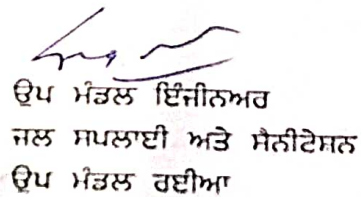 ਉਪ ਮੰਡਲ ਇੰਜੀਨਅਰ
ਜਲ ਸਪਲਾਈ ਅਤੇ ਸੈਨੀਟੇਸ਼ਨ
ਉਪ ਮੰਡਲ ਰਈਆ